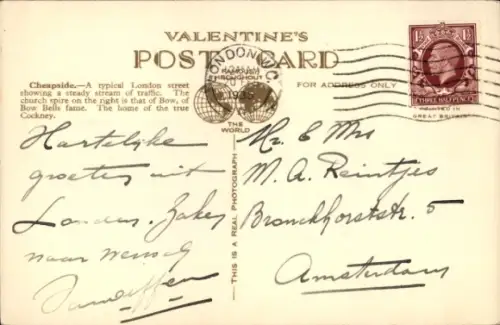 VALENTINE'S
POST CARD
FAMOUS
THROUGHOUT
THE
WORLD
FOR ADDRESS ONLY
Cheapside.—A typical London street
showing a steady stream of traffic. The
church spire on the right is that of Bow, of
Bow Bells fame. The home of the true
Cockney.
THIS IS A REAL PHOTOGRAPH
PRINTED IN
GREAT BRITAIN
THREE HALFPENCE
LONDON
Hartelijke
groeten uit
Londen. Zaken
naar wensch
Mr. & Mrs
M. A. Reintjes
Bronckhorststr. 5
Amsterdam